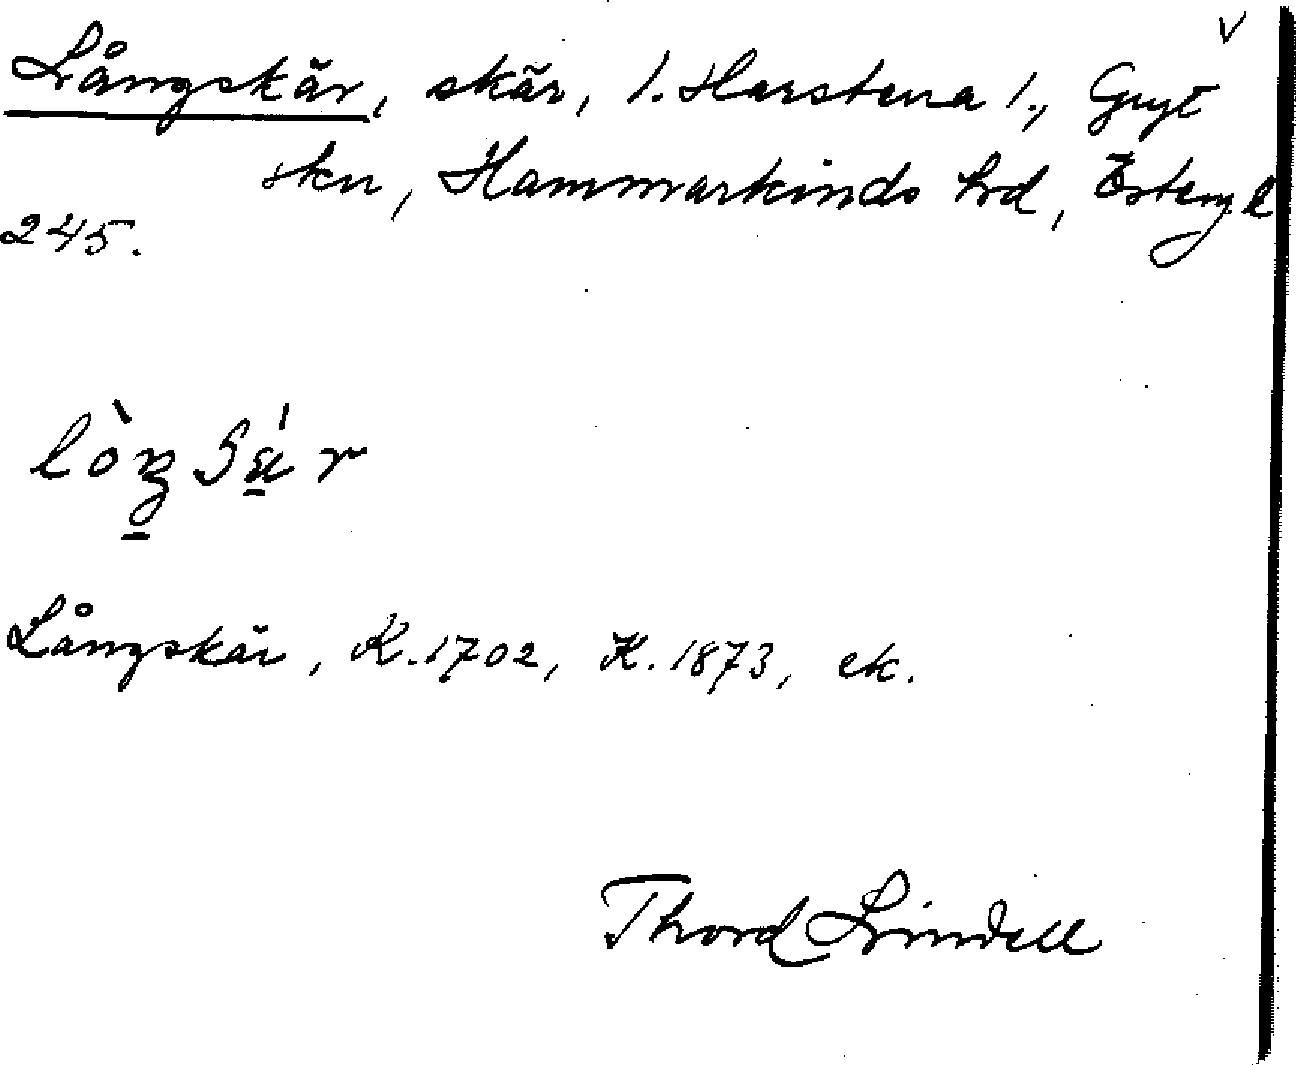 v
Långskär, skär, l. Harstena l., Gryt
skn, Hammarkinds hrd, Östergl
245.
Långskär, K. 1702, K. 1873, ek.
Thord Lindell